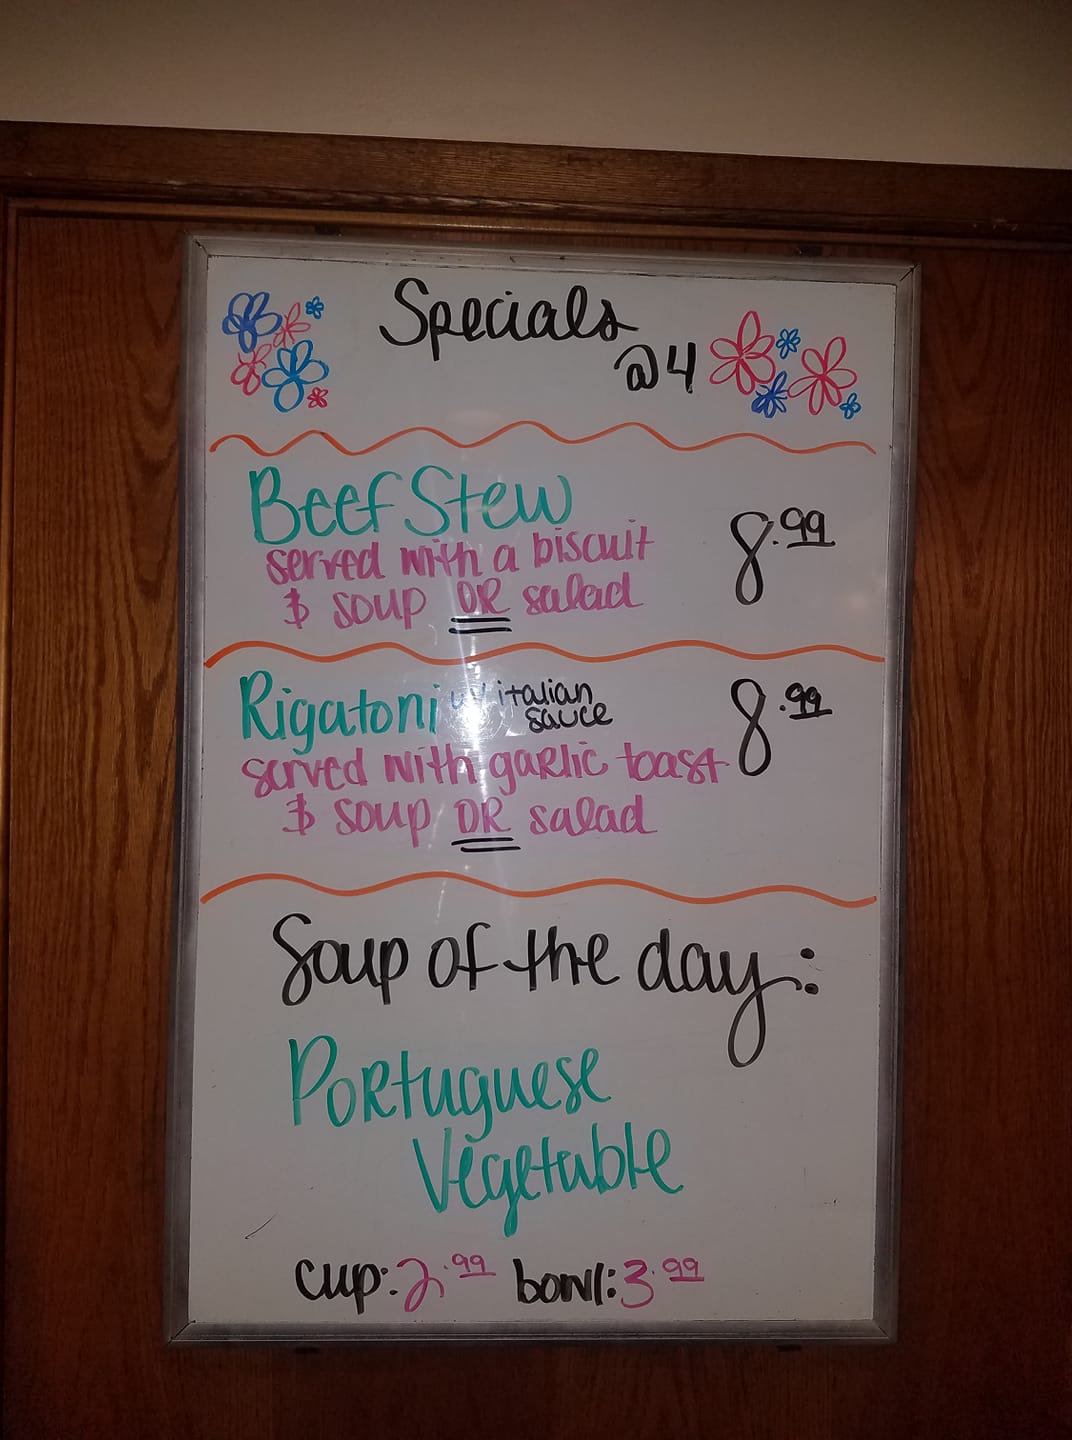 Specials
@4
Beef Stew
served with a biscuit
& soup OR salad
8.99
Rigatoni w/ italian
sauce
8.99
served with garlic toast
& soup OR salad
Soup of the day:
Portuguese
Vegetable
cup: 2.99 bowl: 3.99